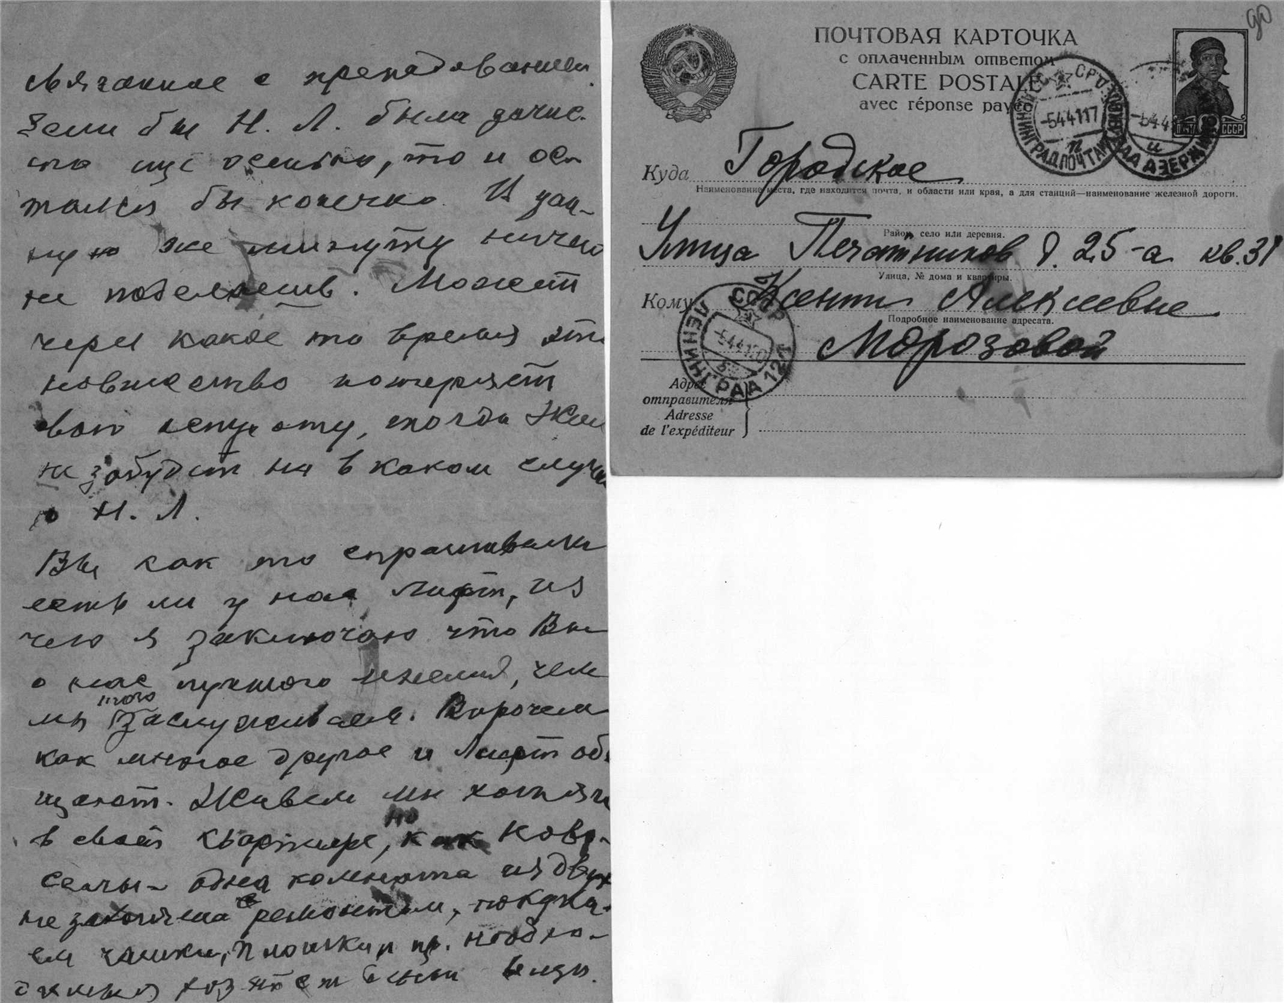 связанное с преподаванием.
Если бы Н. Л. была зачис-
на еще осенью, то и ос-
талась бы конечно. В дан-
ную же минуту ничего
не поделаешь. Может
через какое то время это
новшество потеряет
свою остроту, тогда
не забудет ни в каком случае
о Н. Л.
Вы как то спрашивали
есть ли у нас лифт, из
чего я заключаю что Вы
о нас лучшего мнения, чем
мы того заслуживаем. Впрочем
как многое другое и лифт обе
щают. Живем мы хотя и
в своей квартире, но как ново-
селы - одна комната из двух
не закончена с ремонтом, покупа-
ем чашки, плошки и пр. необхо-
димые хозяйствен вещи.
90
ПОЧТОВАЯ КАРТОЧКА
с оплаченным ответом
CARTE POSTALE
avec réponse payée
СССР
ЛЕНИНГРАД. ПОЧТАМТ
-5.4.41.17
Куда Городское
Наименование места, где находится почта, и области или края, а для станций—наименование железной дороги.
Район, село или деревня.
Улица Печатников д. 25-а кв. 31
Улица, № дома и квартиры.
Кому Ксении Алексеевне
Подробное наименование адресата.
Морозовой
СССР
ЛЕНИНГРАД 121
-5.4.41
Адрес
отправителя
Adresse
de l'expéditeur